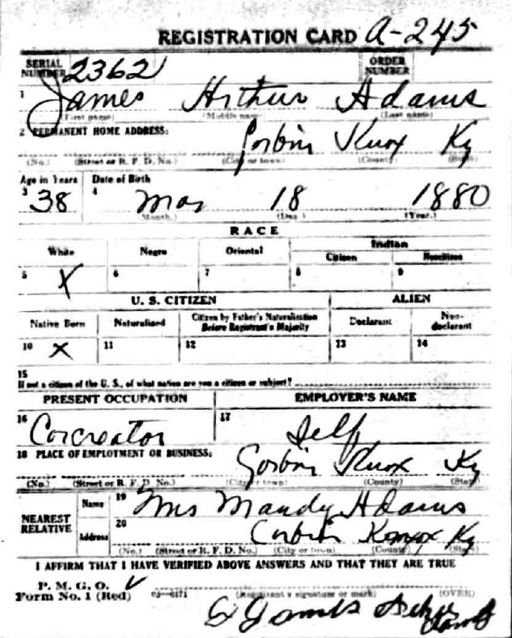 REGISTRATION CARD A-245
SERIAL NUMBER 2362 ORDER NUMBER
1 James Arthur Adams
(First name) (Middle name) (Last name)
2 PERMANENT HOME ADDRESS: Corbin Knox Ky
(No.) (Street or R. F. D. No.) (City or town) (County) (State)
Age in Years Date of Birth
3 38 4 18 1880
(Month.) (Day.) (Year.)
RACE
White Negro Oriental Indian
Citizen Noncitizen
5 X 6 7 8 9
U. S. CITIZEN ALIEN
Native Born Naturalized Citizen by Father's Naturalization Before Registrant's Majority Declarant Non-declarant
10 X 11 12 13 14
15
If not a citizen of the U. S., of what nation are you a citizen or subject?
PRESENT OCCUPATION EMPLOYER'S NAME
16 17 Self
18 PLACE OF EMPLOYMENT OR BUSINESS: Corbin Knox Ky
(No.) (Street or R. F. D. No.) (City or town) (County) (State)
NEAREST RELATIVE
Name 19 Mrs Mandy Adams
Address 20 Corbin Knox Ky
(No.) (Street or R. F. D. No.) (City or town) (County) (State)
I AFFIRM THAT I HAVE VERIFIED ABOVE ANSWERS AND THAT THEY ARE TRUE
P. M. G. O.
Form No. 1 (Red) 03-6171 (Registrant's signature or mark) (OVER)
James